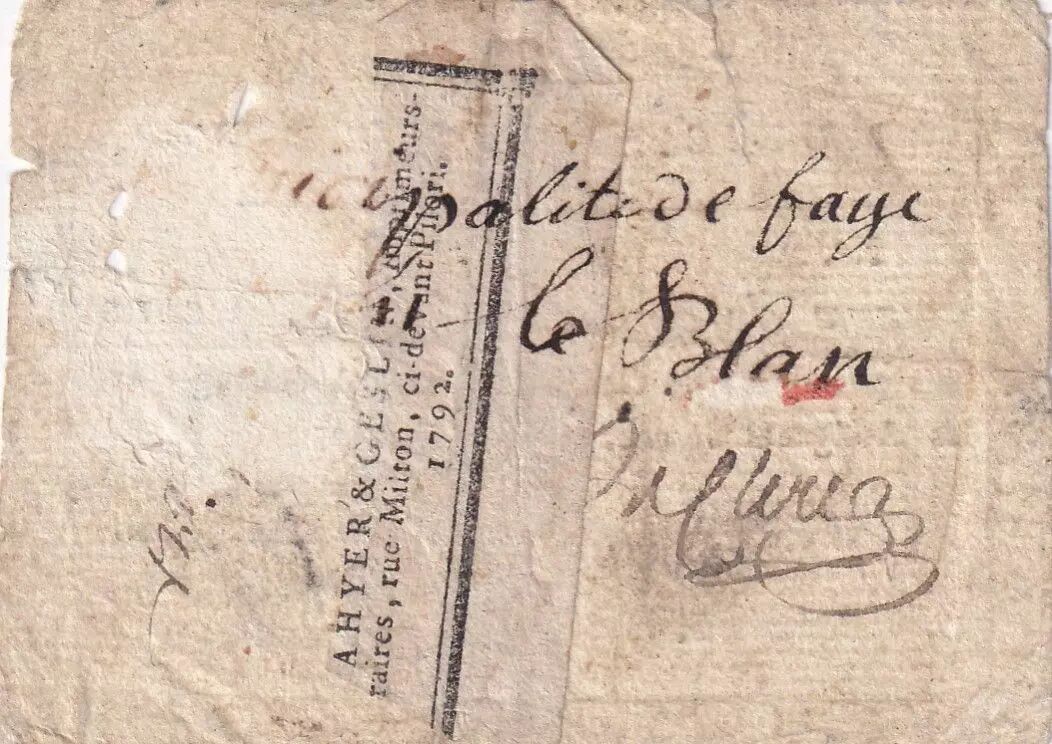 palite de faye
le Blan
AHYER & GESLIN, Imprimeurs-
raires, rue Milton, ci-devant Pilori.
1792.